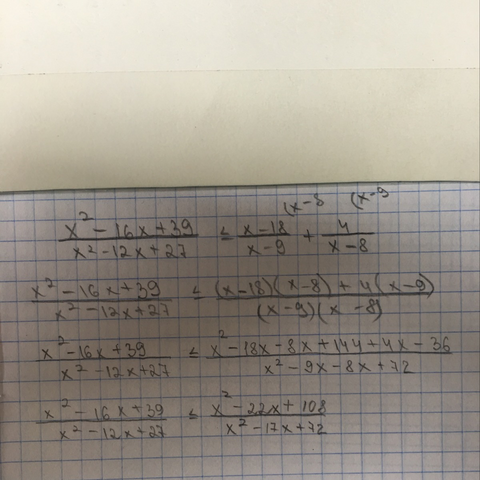 (x-8 (x-9
x² - 16x + 39 / x² - 12x + 27 ≤ x-18 / x-9 + 4 / x-8
x² - 16x + 39 / x² - 12x + 27 ≤ (x-18)(x-8) + 4(x-9) / (x-9)(x-8)
x² - 16x + 39 / x² - 12x + 27 ≤ x² - 18x - 8x + 144 + 4x - 36 / x² - 9x - 8x + 72
x² - 16x + 39 / x² - 12x + 27 ≤ x² - 22x + 108 / x² - 17x + 72